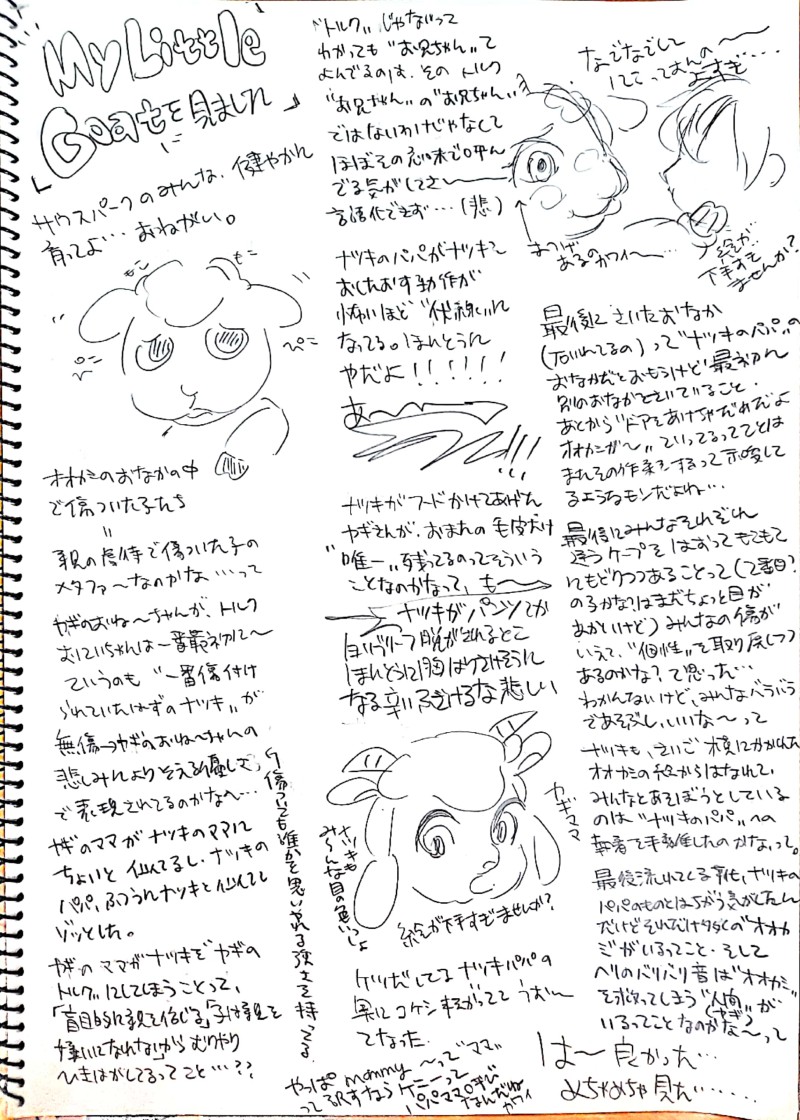 「My Little
Goatを見ました」
サウスパークのみんな、健やかに
育ってよ…おねがい。
もこ
もこ
ぺこ
ぺこ
オオカミのおなかの中
で傷ついた子たち
＝
親の虐待で傷ついた子の
メタファーなのかな…って
ヤギのおね〜ちゃんが、トルク
おにいちゃんは一番最初に〜
ていうのも"一番傷付け
られていたはずのナツキ"が
無傷→ヤギのおね〜ちゃんの
悲しみによりそえる優しさ
で表現されてるのかな〜…
↳傷ついても誰かを思いやれる強さを持ってる
ヤギのママがナツキのママに
ちょいと似てるし、ナツキの
パパ、ふつうにナツキと似てて
ゾッとした。
ヤギのママがナツキをヤギの
トルクにしてしまうことって、
「盲目的に親を信じる」「子は親を
嫌いになれない」からむりやり
ひきはがしてるってこと…??
"トルク"じゃないって
わかっても"お兄ちゃん"て
よんでるのは、その トルク
"お兄ちゃん"の"お兄ちゃん"
ではないわけじゃなくて
ほぼその意味で呼ん
でる気がしてさ〜
言語化できず…(悲)
ナツキのパパがナツキを
おしたおす動作が
怖いほど"伏線"に
なってる。ほんとうに
やだよ!!!!!!
あ〜
!!!
ナツキがフードかけてあげた
ヤギさんが、おまたの毛皮だけ
"唯一"残ってるのってそういう
ことなのかなって、も〜
ナツキがパンツてか
白いブリーフ脱がされるとこ
ほんとうに胸はりさけそうに
なる辛い泣けるな悲しい
ヤギママ
ナツキも
み〜んな目の色いっしょ
絵が下手すぎませんか?
ケツだしてるナツキパパの
奥にコケシ転がってて うお〜
てなった
やっぱ mommy 〜って"ママ"
って訳すなら ケニーって
パパママ呼び
なんだね
カワイ
なでなでして
にこっておんの〜
よすぎ…
まつげ
あるのカワイ〜…
絵が…
下手すぎ
ませんか?
最後にさいたおなか
(石いれてるの)って"ナツキのパパ"の
おなかだとおもうけど最初に
別のおなかをさいていること、
あとから"ドアをあけちゃだめだよ
オオカミが〜"っていってるってことは
またその作業をするって示唆して
るようなモンだよね…
最後にみんなそれぞれ
違うケープをはおってもてもて
にもどりつつあることって(2番目?
のるかな?はまだちょっと目が
あかいけど)みんなの傷が
いえて、"個性"を取り戻しつつ
あるのかな?て思った…
わかんないけど、みんなバラバラ
であそぶし、いいな〜って
ナツキも、さいご 横にかかれた
オオカミの絵からはなれて、
みんなとあそぼうとしている
のは"ナツキのパパ"への
執着を手離したのかなって。
最後流れてくる電化、ナツキの
パパのものとはちがう気がしたん
だけどそれだけタタくの"オオカ
ミ"がいるってこと・そして
ヘリのバリバリ音は"オオカミ"
を救ってしまう"人間"が
(ヤギ)
いるってことなのかな〜って
は〜 良かった…
めちゃめちゃ見た……